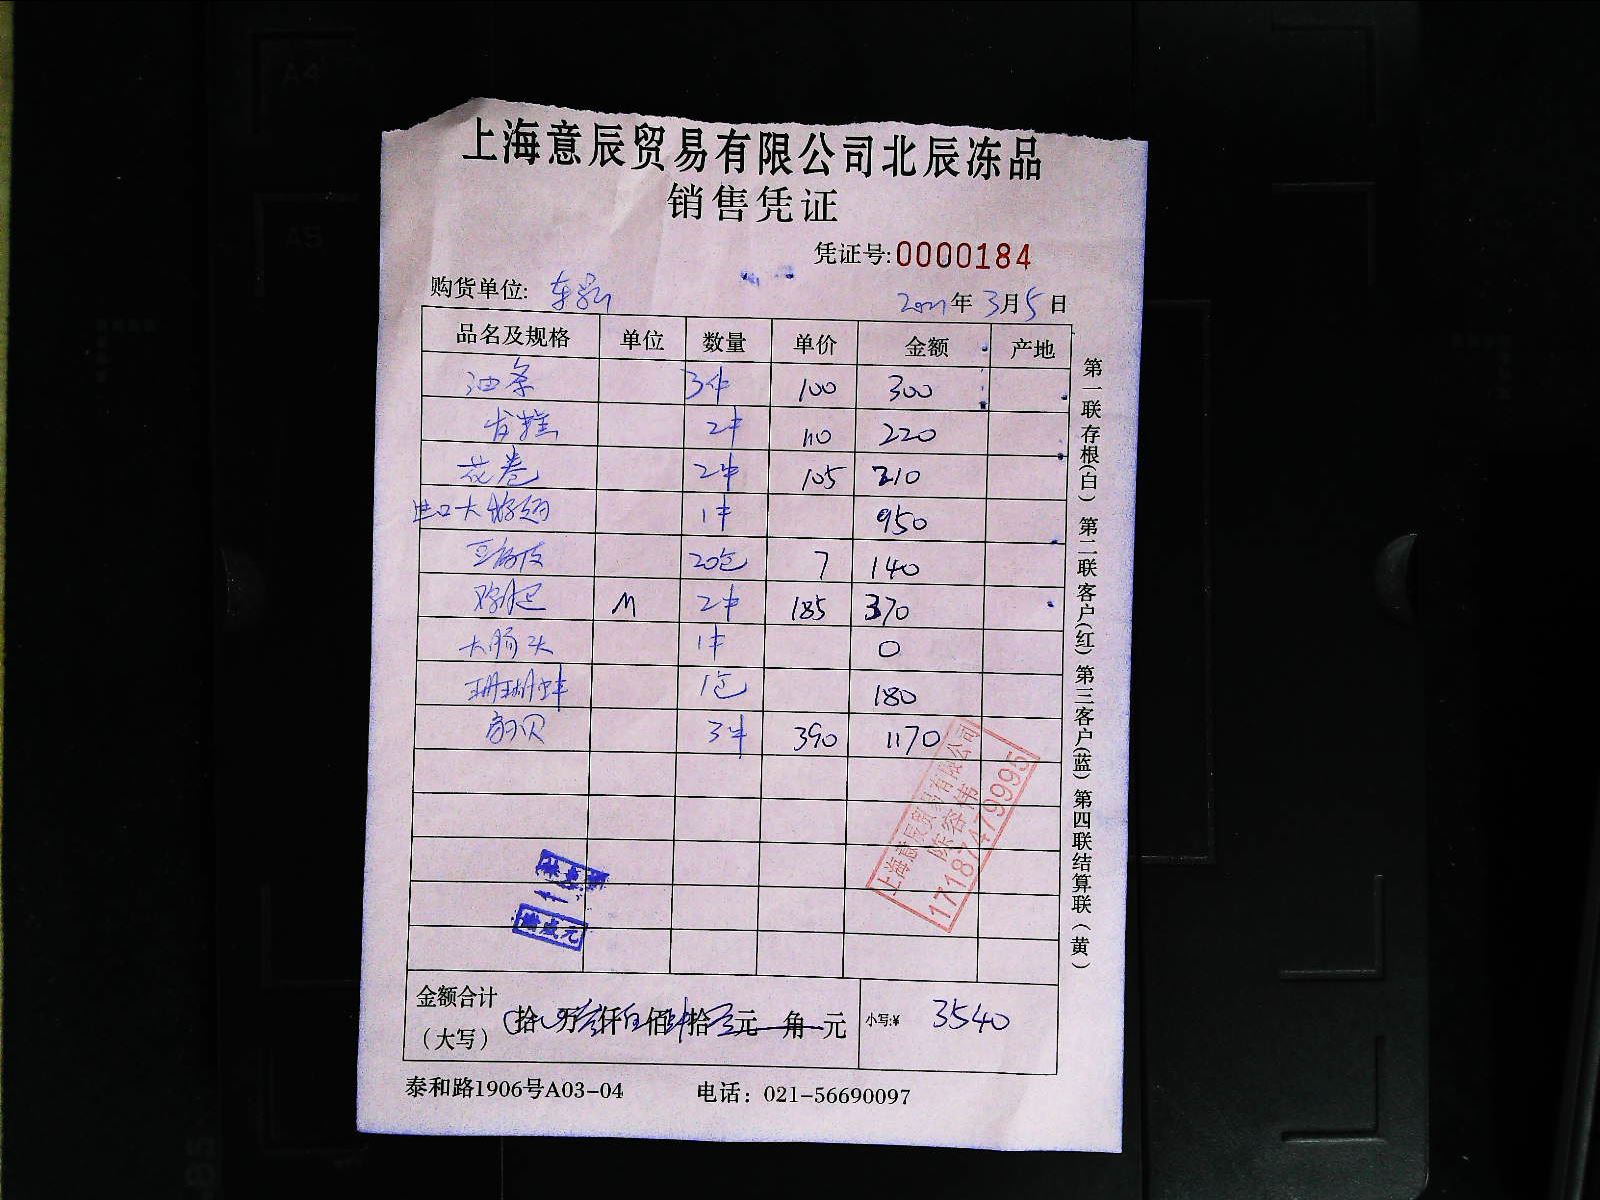 上海意辰贸易有限公司北辰冻品
销售凭证
凭证号:0000184
购货单位:
2021年3月5日
品名及规格 单位 数量 单价 金额 产地
油条 3件 100 300
发糕 2件 110 220
花卷 2件 105 210
进口大 1件 950
豆腐皮 20包 7 140
M 2件 185 370
大肠头 1件 0
珊瑚蚌 1包 180
扇贝 3件 390 1170
上海意辰贸易有限公司
陈容伟
17187479995
金额合计
（大写） 拾 万 仟 佰 拾 元 角 元 小写:¥ 3540
泰和路1906号A03-04 电话：021-56690097
第一联存根(白) 第二联客户(红) 第三客户(蓝) 第四联结算联(黄)
A4
A5